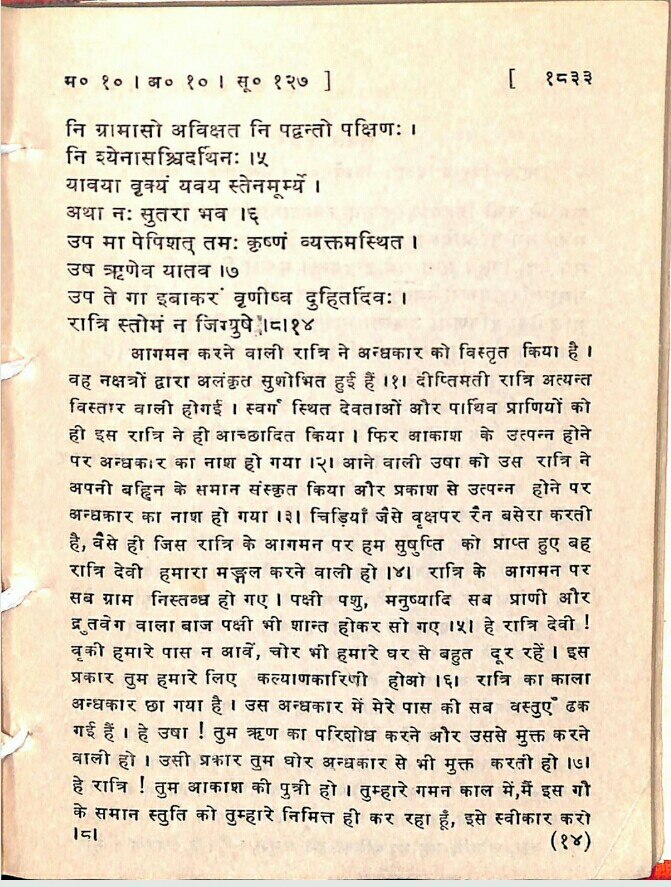 म० १० । अ० १० । सू० १२७ ] [ १८३३
नि ग्रामासो अविक्षत नि पद्वन्तो पक्षिणः ।
नि श्येनासश्चिदर्थिनः ।५
यावया वृक्यं यवय स्तेनमूर्म्ये ।
अथा नः सुतरा भव ।६
उप मा पेपिशत् तमः कृष्णं व्यक्तमस्थित ।
उष ऋणेव यातव ।७
उप ते गा इवाकरं वृणीष्व दुहितर्दिवः ।
रात्रि स्तोमं न जिग्युषे ।८।१४
आगमन करने वाली रात्रि ने अन्धकार को विस्तृत किया है ।
वह नक्षत्रों द्वारा अलंकृत सुशोभित हुई हैं ।१। दीप्तिमती रात्रि अत्यन्त
विस्तार वाली होगई । स्वर्ग स्थित देवताओं और पार्थिव प्राणियों को
ही इस रात्रि ने ही आच्छादित किया । फिर आकाश के उत्पन्न होने
पर अन्धकार का नाश हो गया ।२। आने वाली उषा को उस रात्रि ने
अपनी बहिन के समान संस्कृत किया और प्रकाश से उत्पन्न होने पर
अन्धकार का नाश हो गया ।३। चिड़ियाँ जैसे वृक्षपर रैन बसेरा करती
है, वैसे ही जिस रात्रि के आगमन पर हम सुषुप्ति को प्राप्त हुए बह
रात्रि देवी हमारा मङ्गल करने वाली हो ।४। रात्रि के आगमन पर
सब ग्राम निस्तब्ध हो गए । पक्षी पशु, मनुष्यादि सब प्राणी और
द्रुतवेग वाला बाज पक्षी भी शान्त होकर सो गए ।५। हे रात्रि देवी !
वृकी हमारे पास न आवें, चोर भी हमारे घर से बहुत दूर रहें । इस
प्रकार तुम हमारे लिए कल्याणकारिणी होओ ।६। रात्रि का काला
अन्धकार छा गया है । उस अन्धकार में मेरे पास की सब वस्तुएँ ढक
गई हैं । हे उषा ! तुम ऋण का परिशोध करने और उससे मुक्त करने
वाली हो । उसी प्रकार तुम घोर अन्धकार से भी मुक्त करती हो ।७।
हे रात्रि ! तुम आकाश की पुत्री हो । तुम्हारे गमन काल में,मैं इस गौ
के समान स्तुति को तुम्हारे निमित्त ही कर रहा हूँ, इसे स्वीकार करो
।८। (१४)